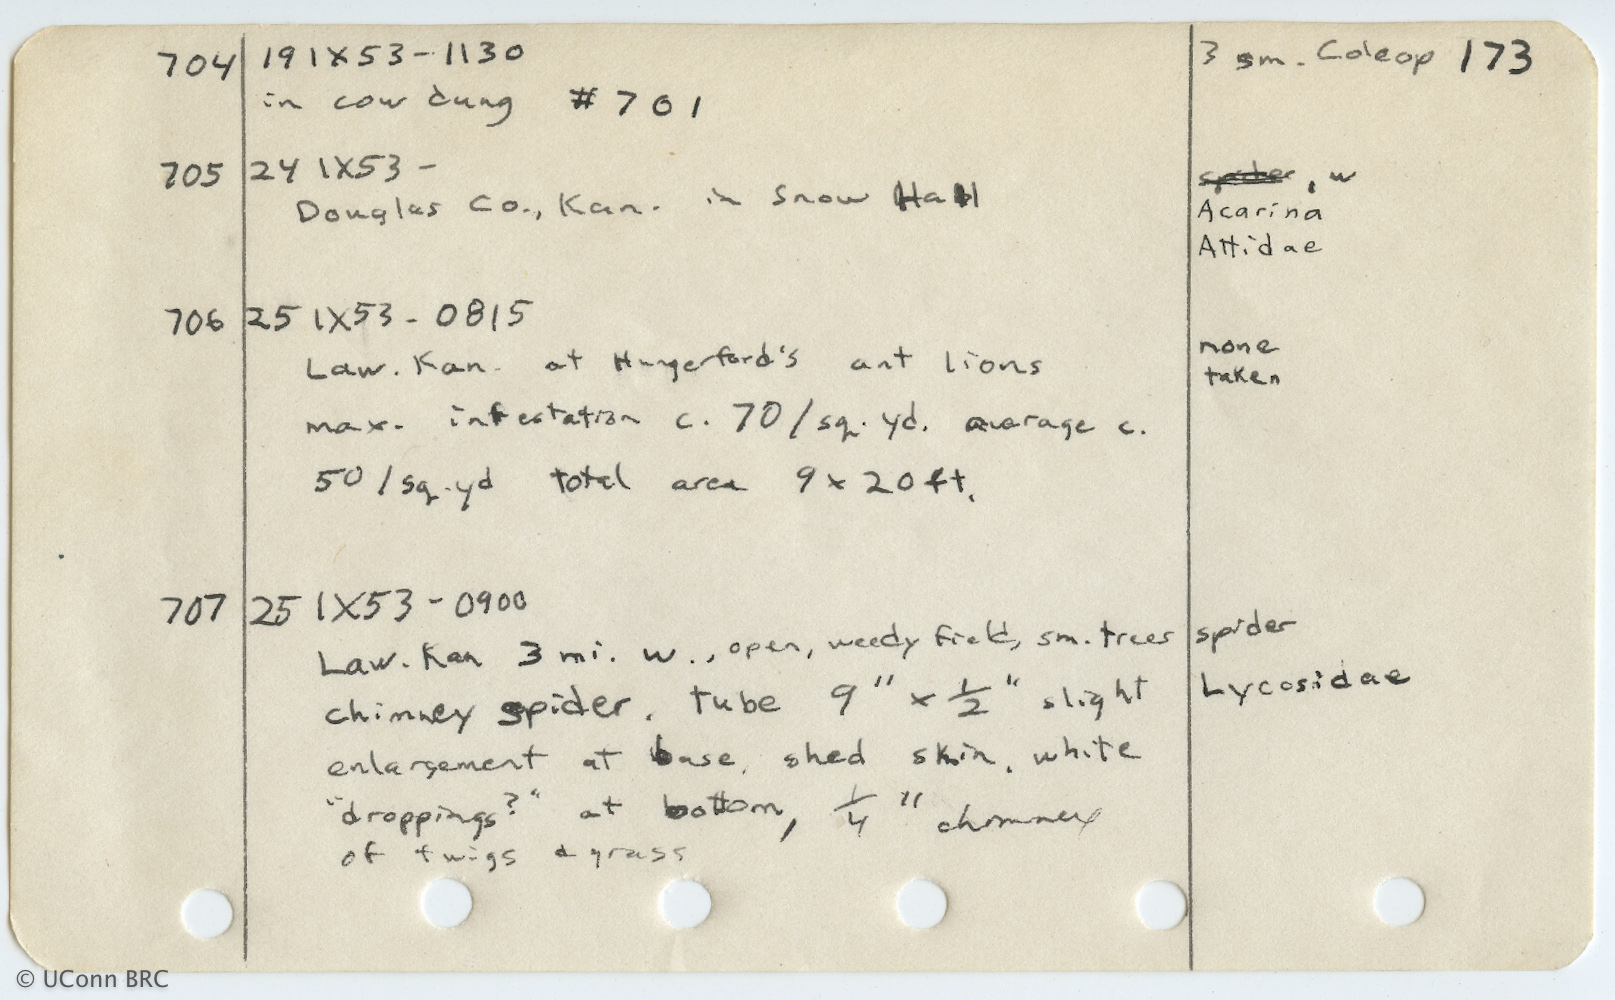 704 19 IX 53 - 1130 3 sm. Coleop 173
in cow dung #701
705 24 IX 53 -
spider, w
Douglas Co., Kan. in Snow Hall
Acarina
Attidae
706 25 IX 53 - 0815
none
Law. Kan. at Hungerford's ant lions
taken
max. infestation c. 70/sq. yd. average c.
50/sq. yd total area 9 x 20 ft.
707 25 IX 53 - 0900
Law. Kan 3 mi. w., open, weedy field, sm. trees spider
chimney spider. tube 9" x 1/2" slight Lycosidae
enlargement at base. shed skin. white
"droppings?" at bottom, 1/4" chimney
of twigs & grass
© UConn BRC